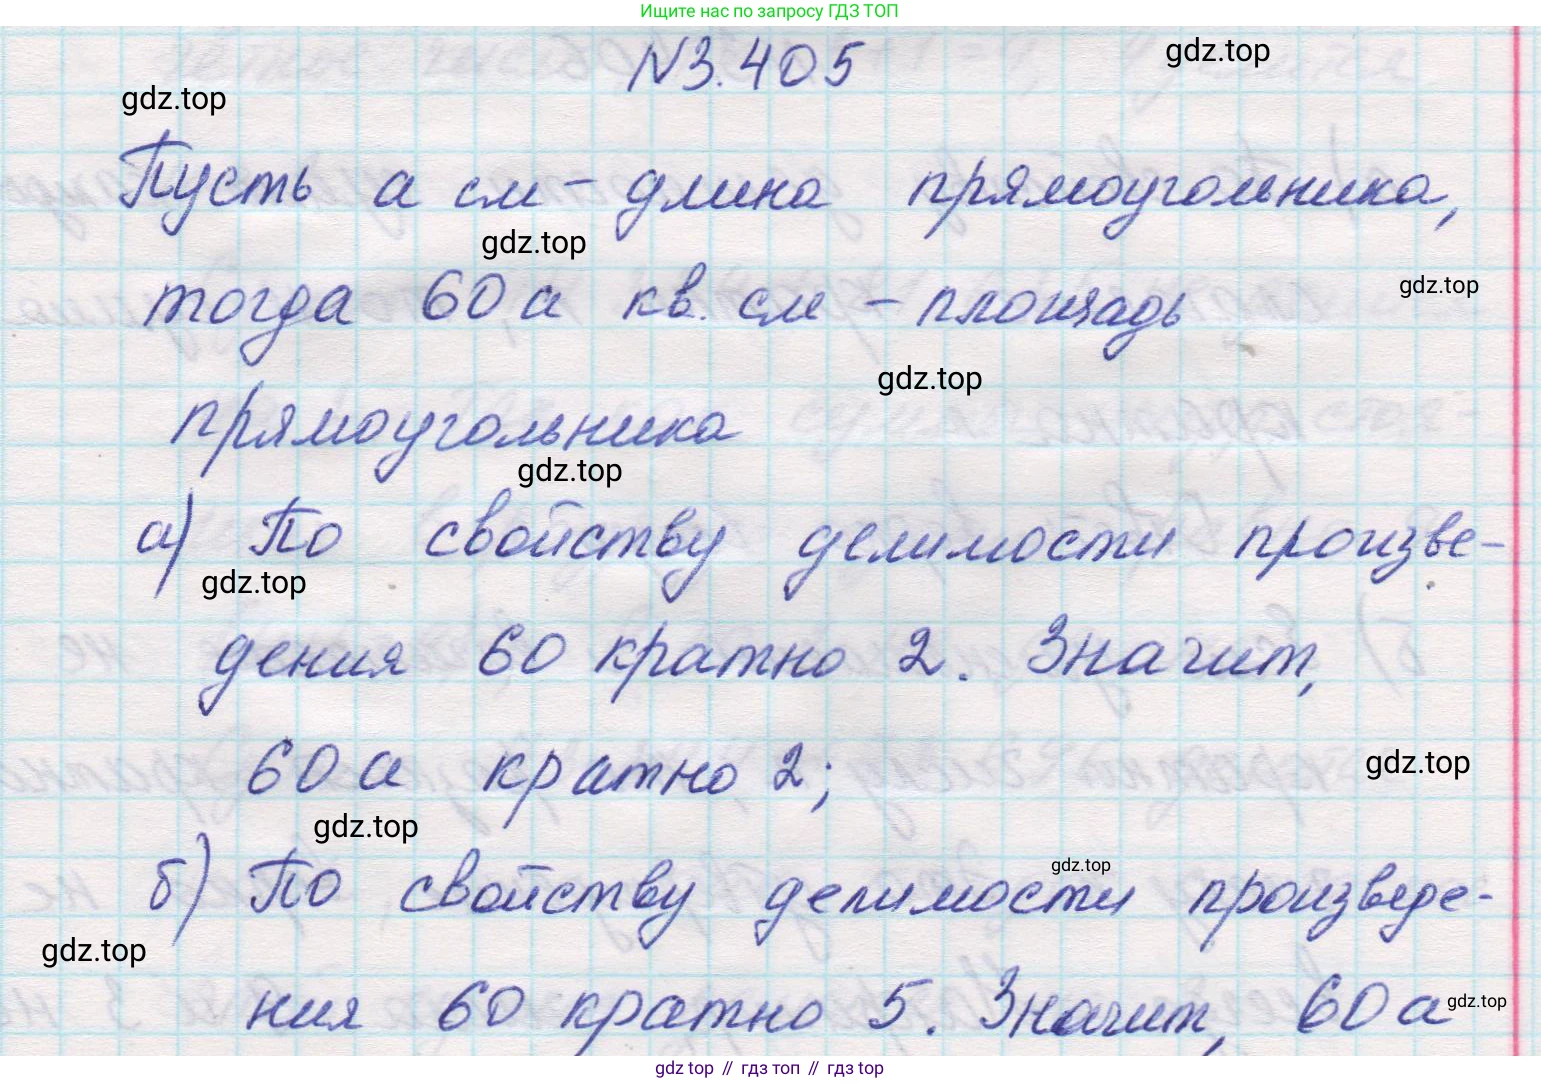 Ищите нас по запросу ГДЗ ТОП
№3.405
gdz.top
gdz.top
Пусть а см – длина прямоугольника,
gdz.top
gdz.top
тогда 60а кв. см – площадь
gdz.top
прямоугольника
gdz.top
а) По свойству делимости произве-
gdz.top
дения 60 кратно 2. Значит,
60а кратно 2;
gdz.top
gdz.top
gdz.top
б) По свойству делимости произведе-
gdz.top
ния 60 кратно 5. Значит, 60а
gdz.top
gdz top // гдз топ // гдз top